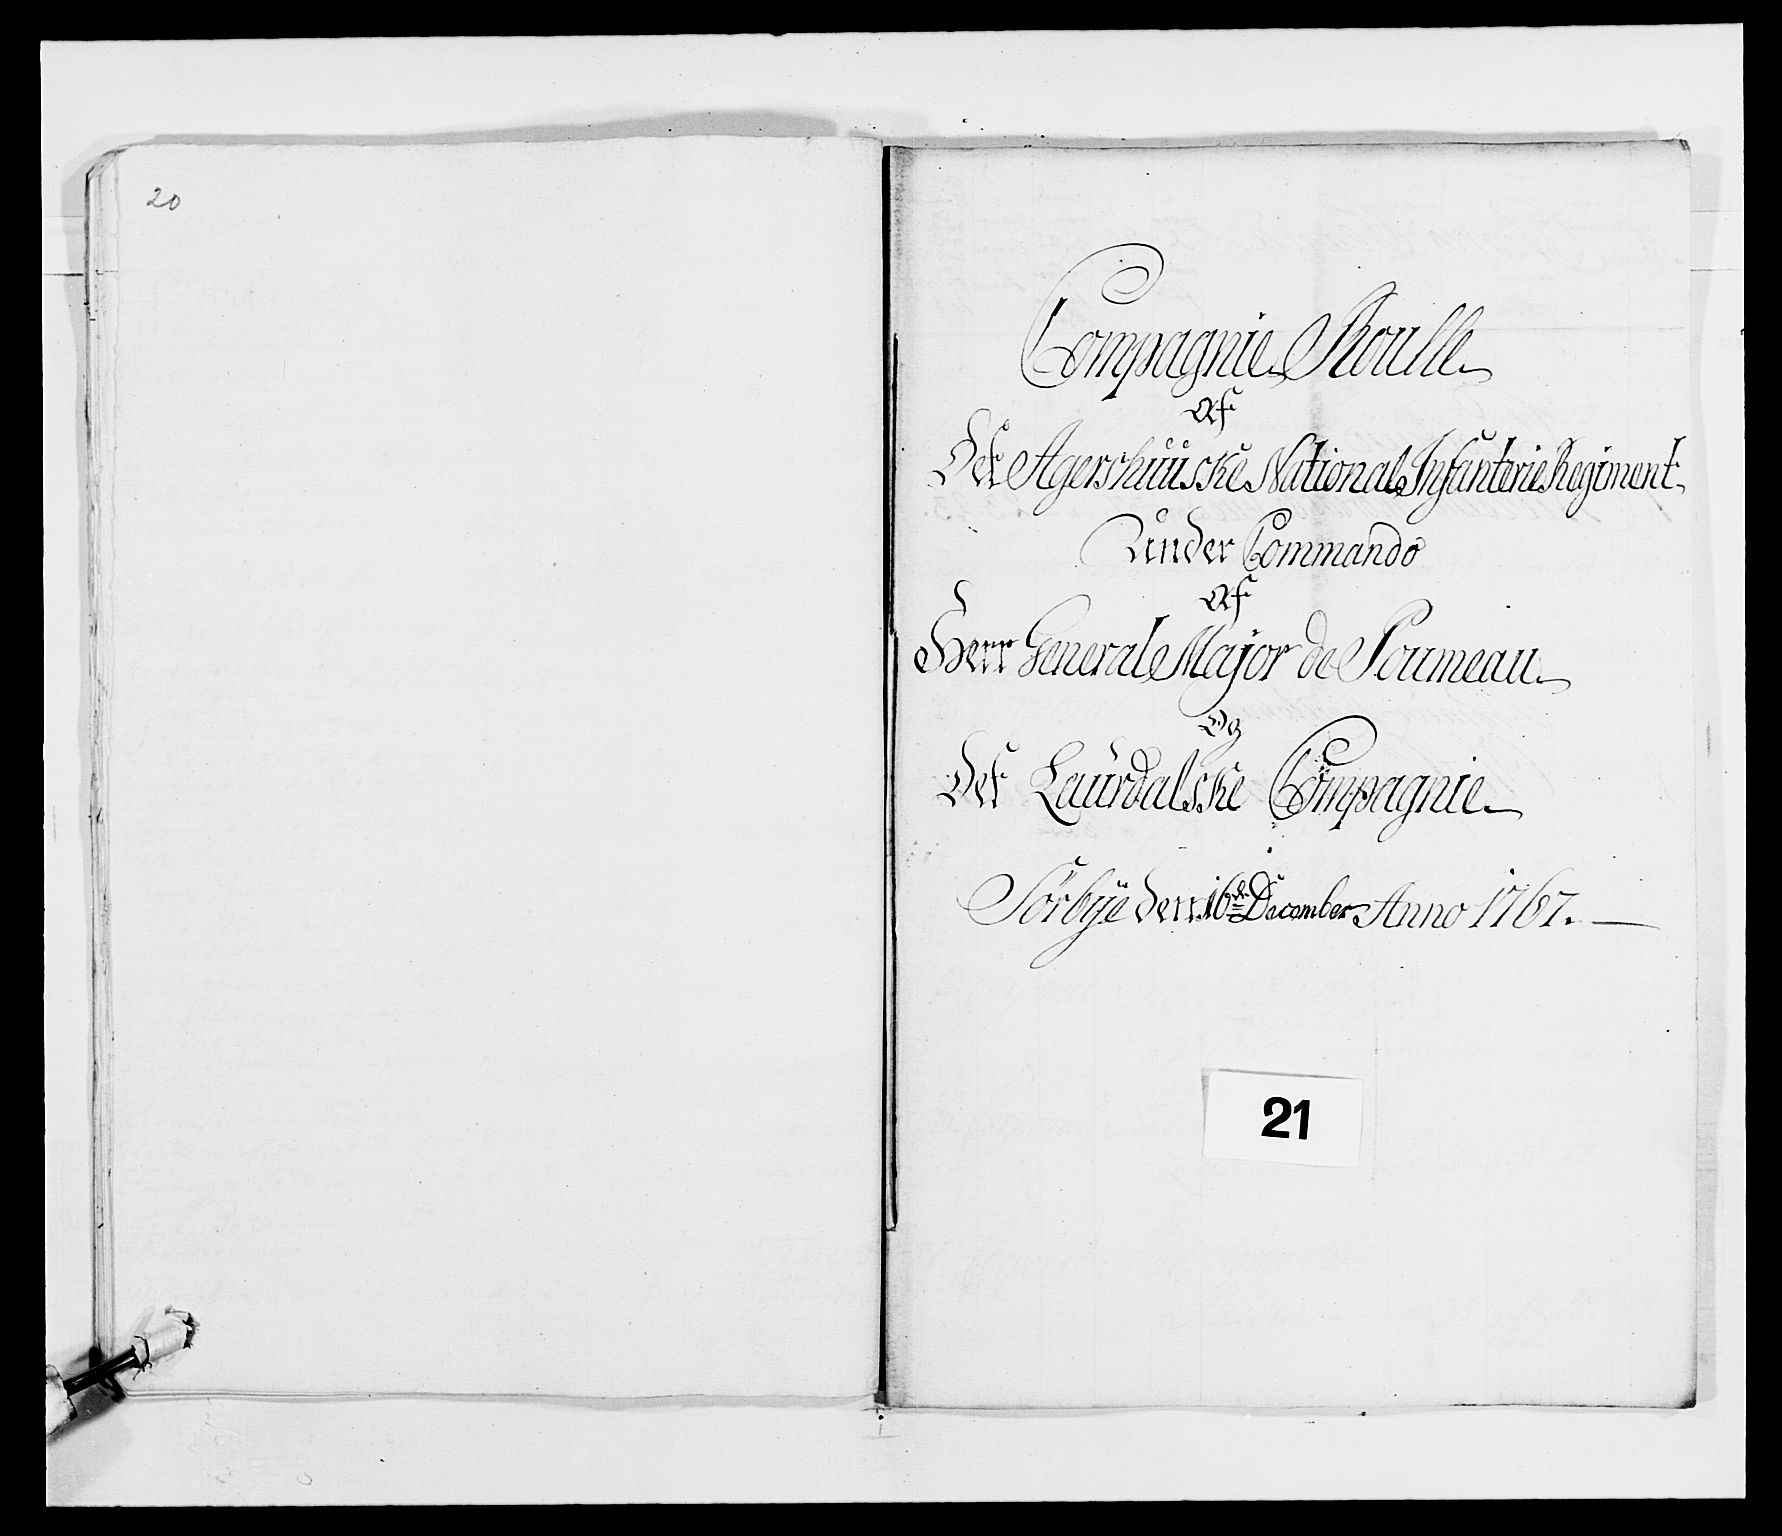 20
Compagnie Roulle
Af
Det Agershuuske National Infanterie Regiment
Under Commando
Af
Herr General Major de Poumeau
Og
Det Laurdalske Compagnie
Sörbye den 16de December Anno 1767. —
21